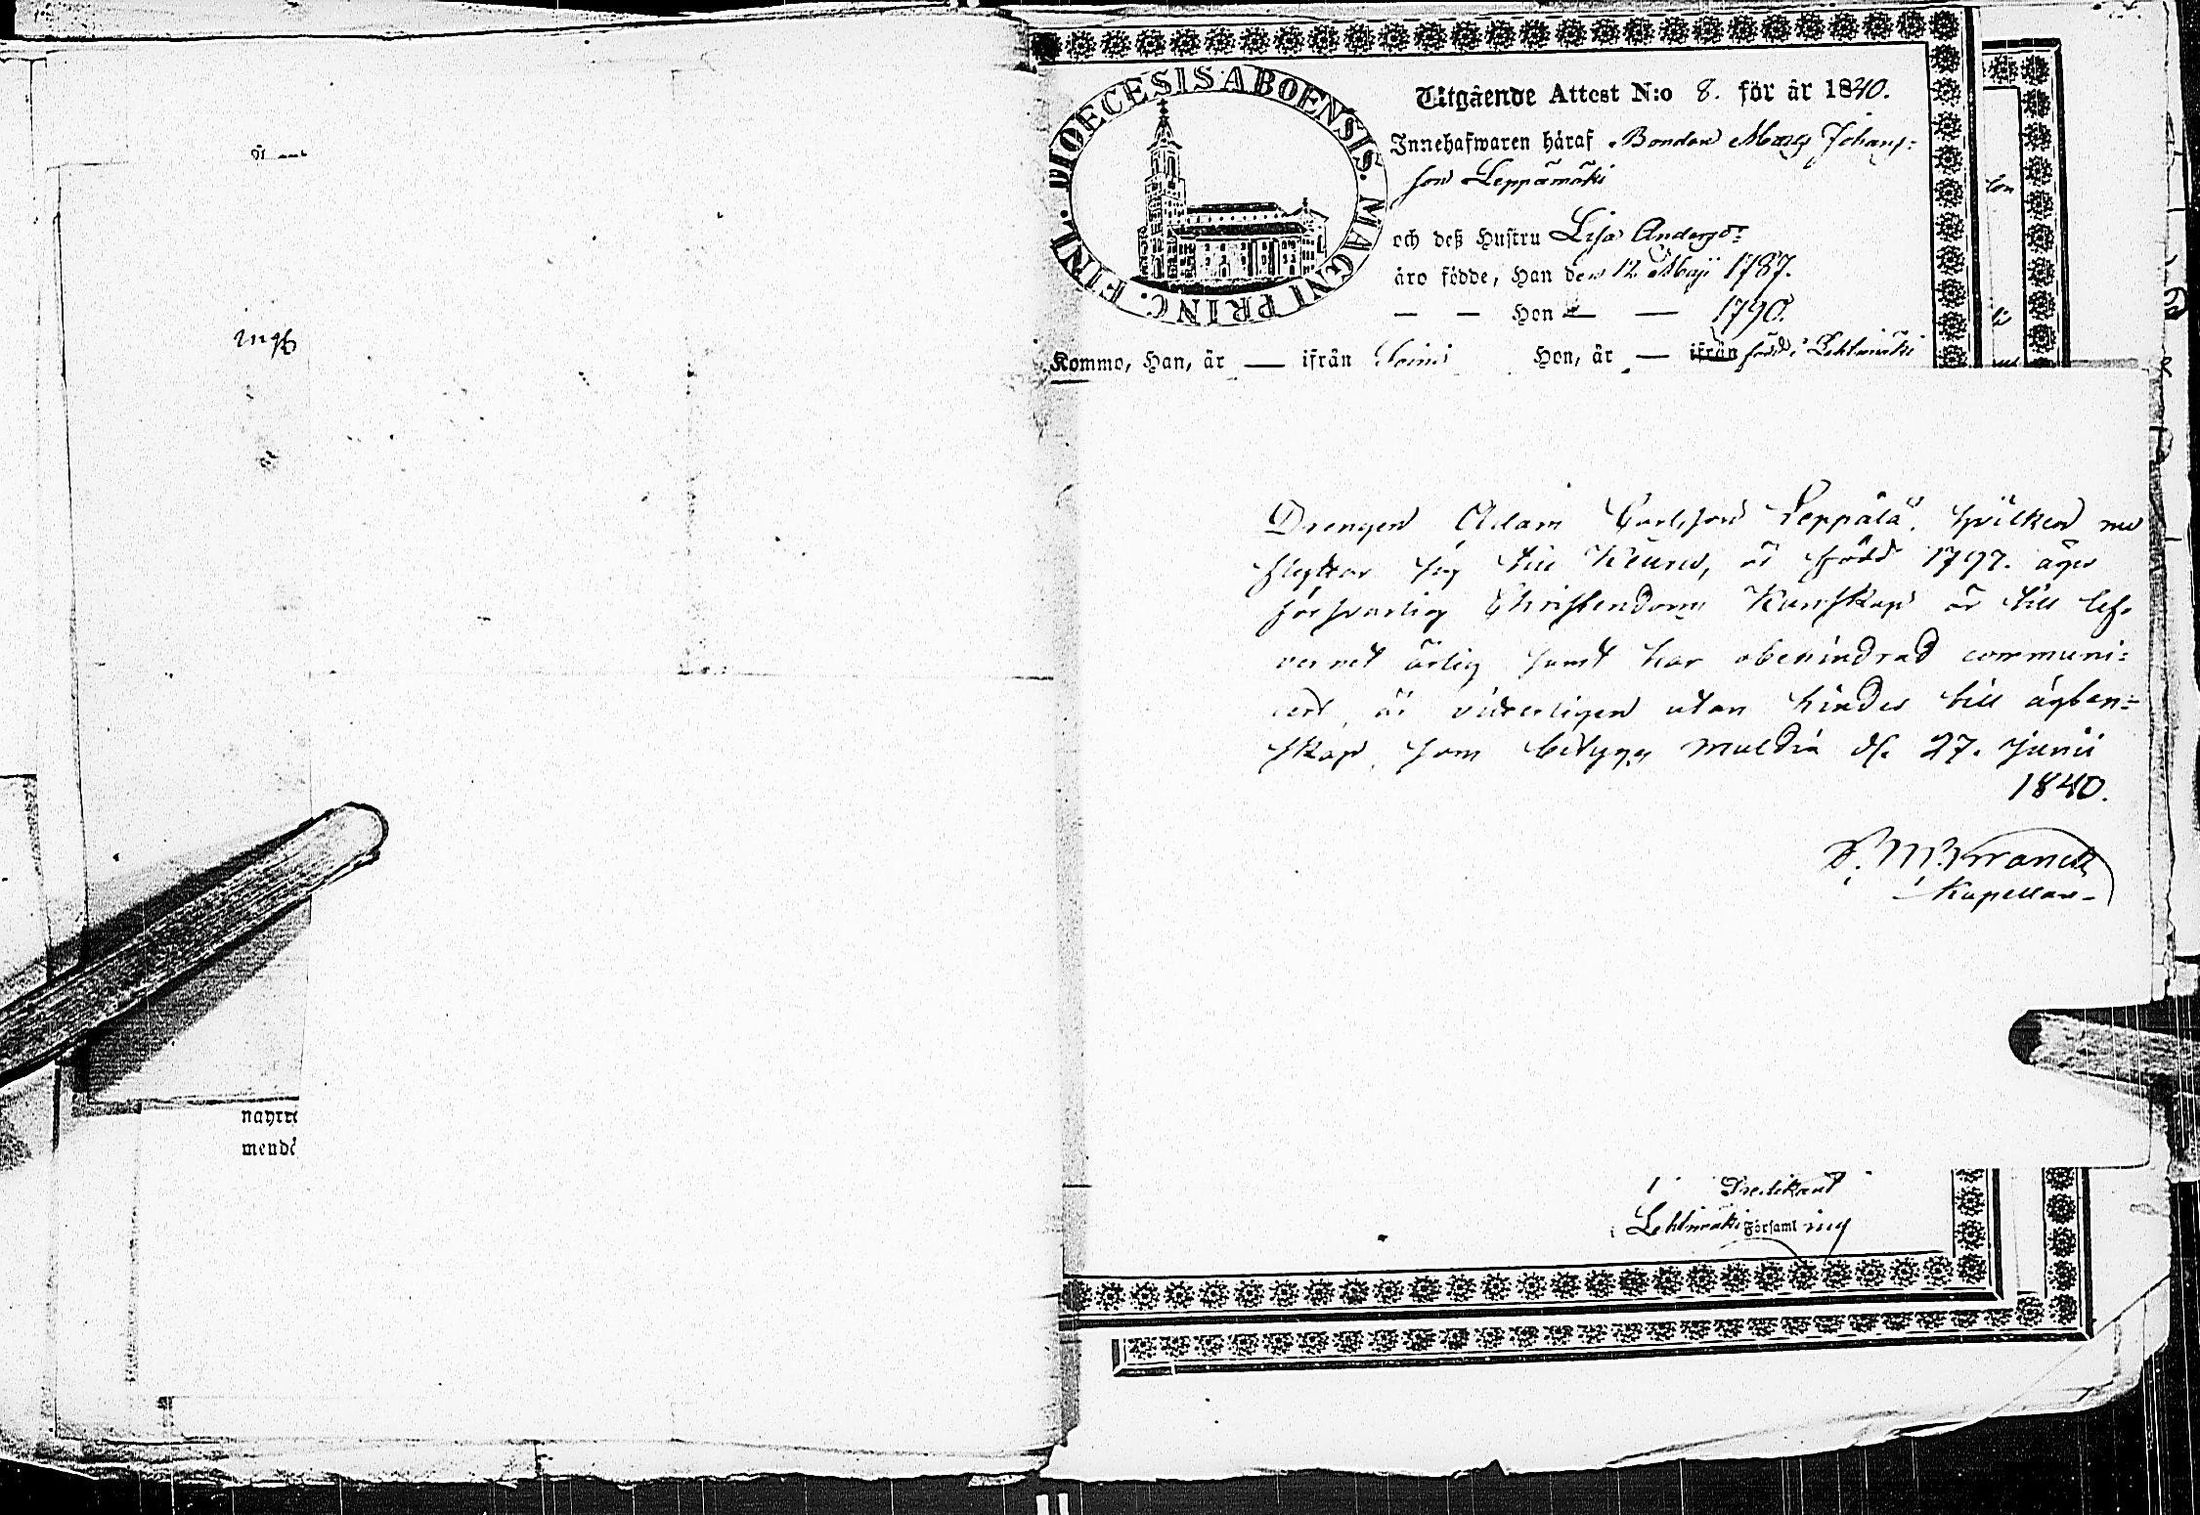 mends
DIOECESIS ABOENSIS. MAGNI PRINC. FINL.
Utgående Attest N:o 8. för år 1840.
Innehafwaren håraf Bonden Matts Johans=
son Leppämäki
och deß Hustru Lisa Andersdr
äro födde, Han den 12 Maji 1787.
— — Hon — — 1790.
Kommo, Han, år — ifrån Soini Hon, år — ifrån född i Lehtimäki
Drengen Adam Carlsson Leppälä, hvilken nu
flyttar sig till Keuru, är född 1797. äger
försvarlig Christendoms Kunskap är till lef=
vernet ärlig samt har obehindrad communi=
cert, är viderligen utan hinder till ägten=
skap, som betygas Multia d. 27. Junii
1840.
Kapellan
Predikant
Lehtimäki Församling